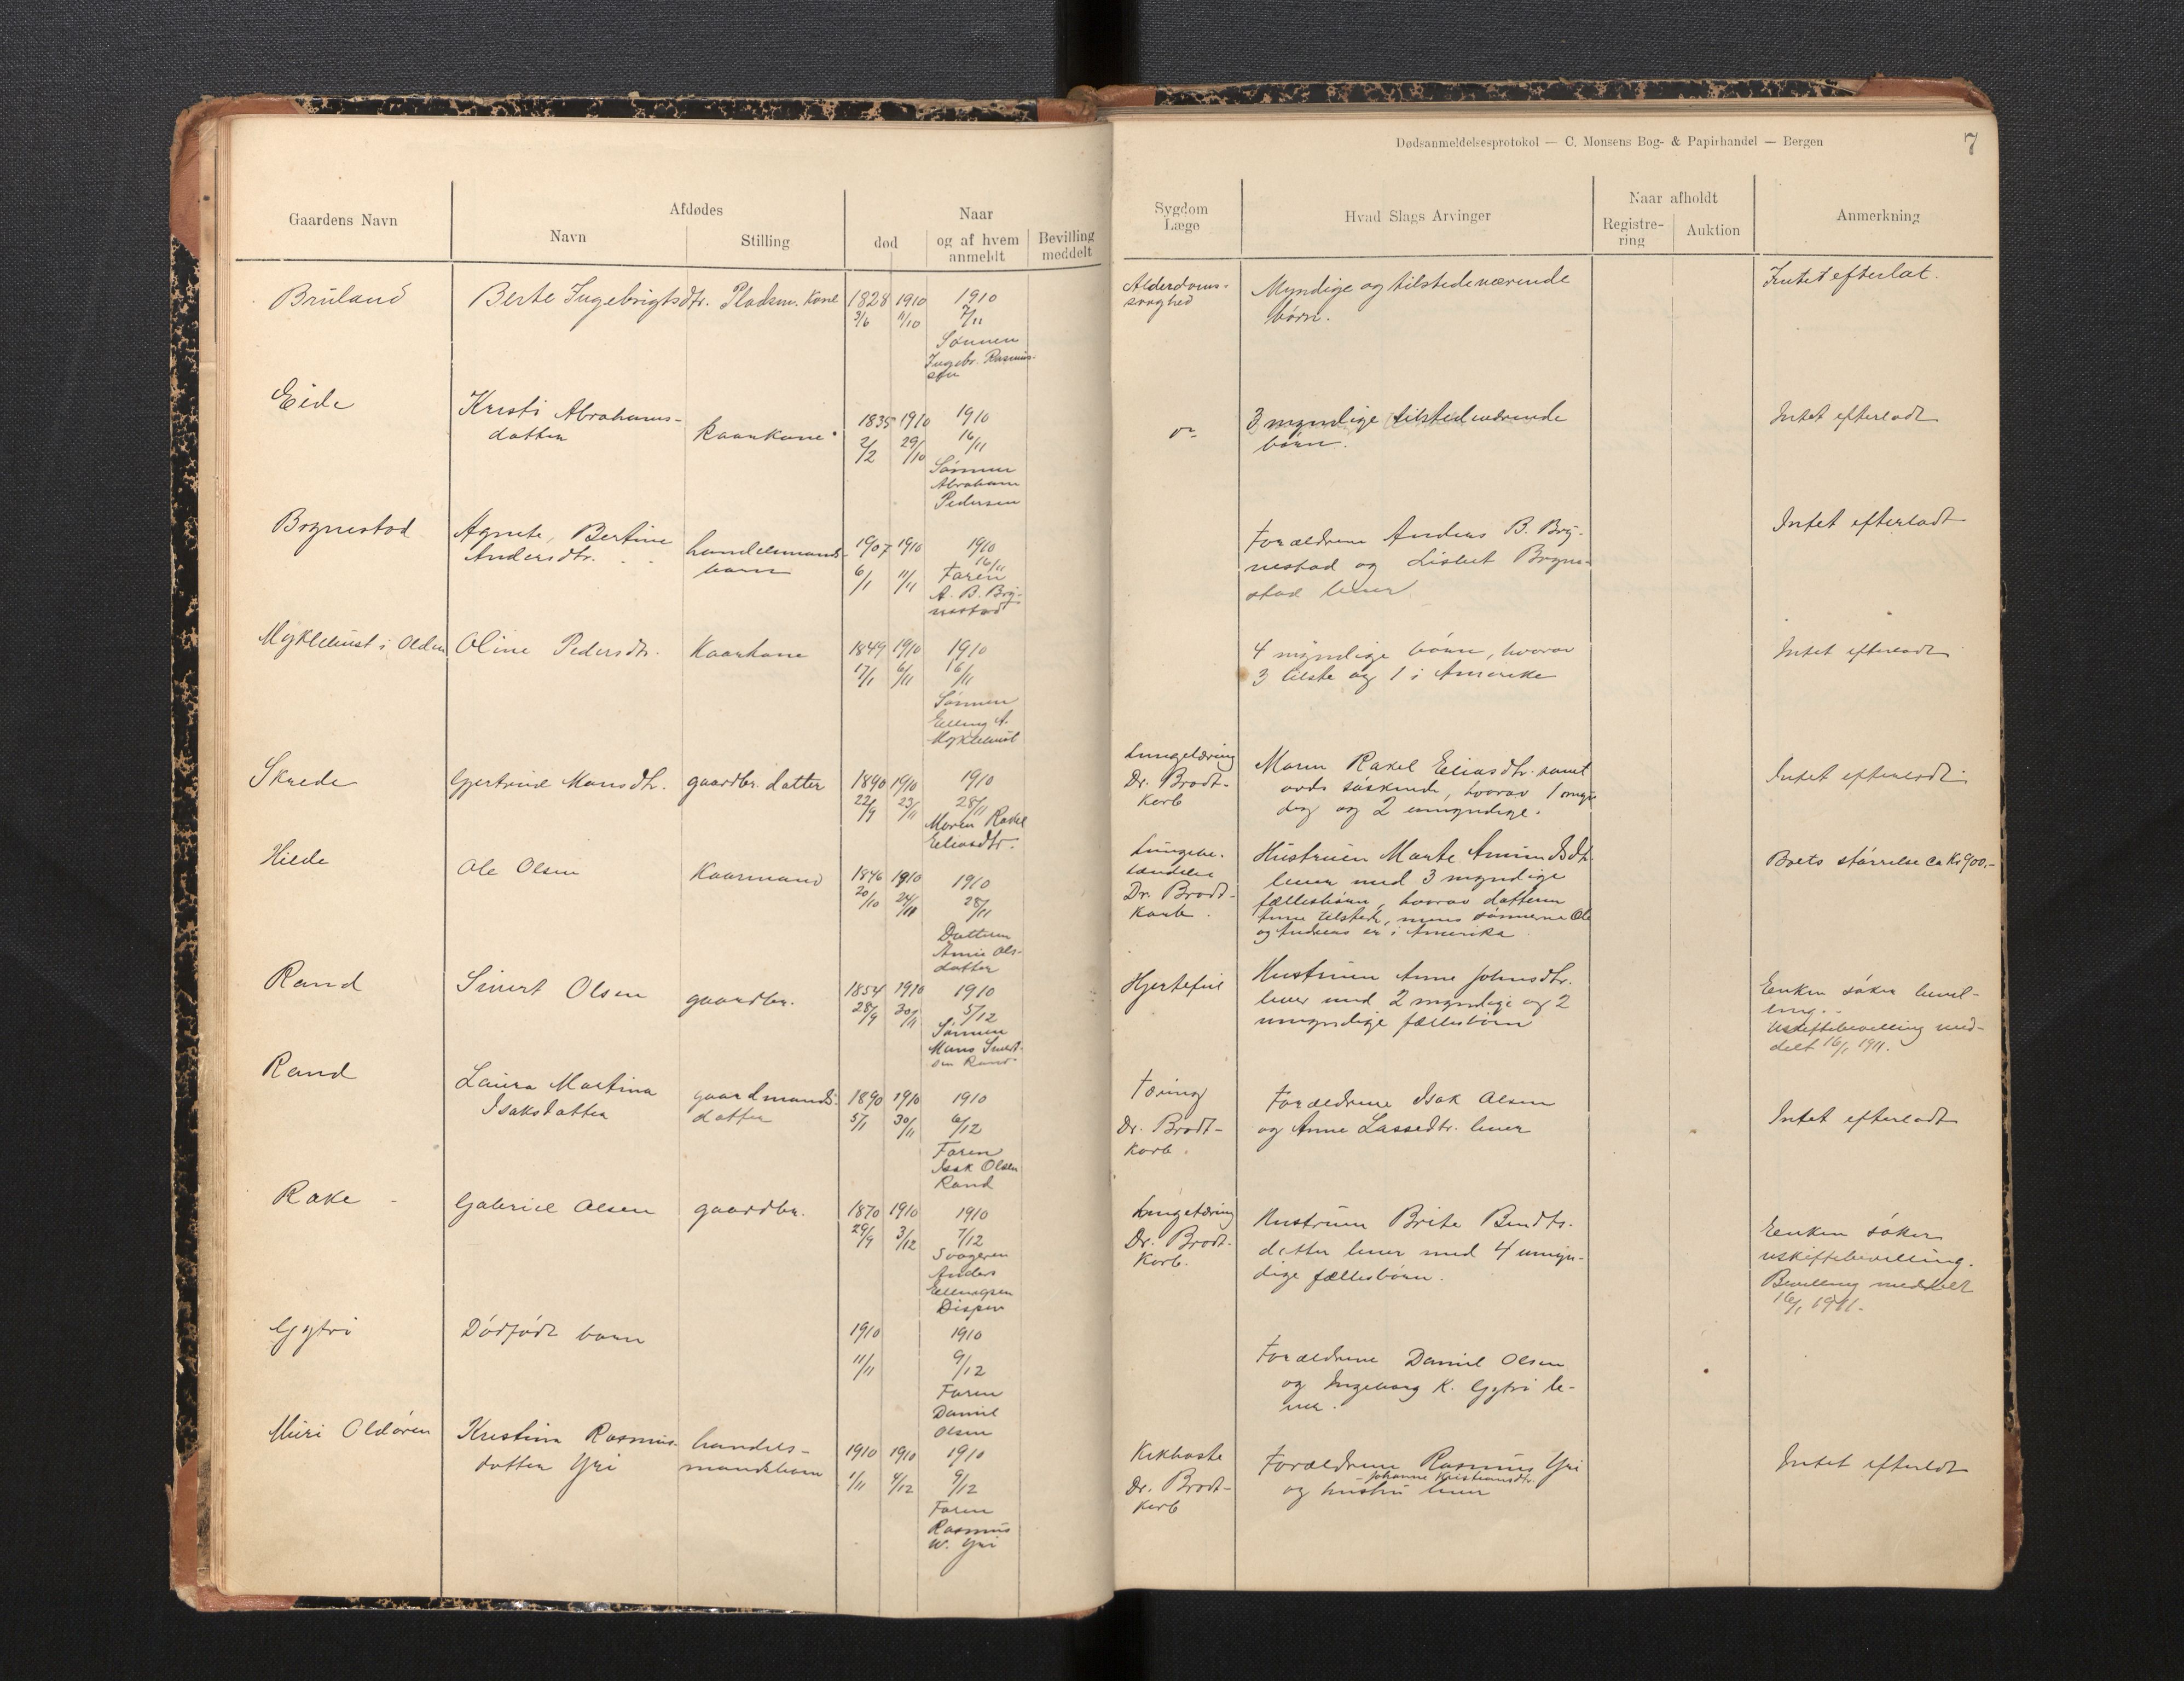 Dødsanmeldelsesprotokol — C. Monsens Bog- & Papirhandel — Bergen
7
Gaardens Navn
Afdødes
Navn
Stilling
Naar
død
og af hvem
anmeldt
Bevilling
meddelt
Sygdom
Læge
Hvad Slags Arvinger
Naar afholdt
Registre-
ring
Auktion
Anmerkning
Bruland
Berte Ingebrigtsdtr.
Pladsm. Kone
1828 1910
3/6 11/10
1910
7/11
Sønnen
Ingebr. Rasmus-
sen
Alderdoms-
svaghed
Myndige og tilstedeværende
børn.
Intet efterlat.
Eide
Kristi Abrahams-
datter
Kaarkone
1835 1910
2/2 29/10
1910
16/11
Sønnen
Abraham
Pedersen
3 myndige tilstedeværende
børn.
Intet efterladt
Brynestad
Agnete, Bertine
Andersdtr.
handelsmands-
barn
1907 1910
6/1 11/11
1910
16/11
Faren
A. B. Bry-
nestad
Forældrene Anders B. Bry-
nestad og Lisbet Bryne-
stad lever
Intet efterladt
Myklebust i Olden
Oline Pedersdtr.
Kaarkone
1849 1910
17/1 6/11
1910
16/11
Sønnen
Elling A.
Myklebust
4 myndige børn, hvorav
3 tilste og 1 i Amerike
Intet efterladt
Skrede
Gjertrud Monsdtr.
gaardbr. datter
1890 1910
22/9 23/11
1910
28/11
Moren Rakel
Eliasdtr.
Lungetæring
Dr. Brodt-
korb
Moren Rakel Eliasdtr. samt
avds søskende, hvorav 1 myn
dig og 2 umyndige.
Intet efterladt
Hilde
Ole Olsen
Kaarmand
1846 1910
20/10 24/11
1910
28/11
Datteren
Anne Ols-
datter
Lungebe-
tændelse
Dr. Brodt-
korb.
Hustruen Marte Amundsdtr.
lever med 3 myndige
fællesbørn, hvorav datteren
Anne tilstede, mens sønnerne Ole
og Andreas er i Amerika
Boets størrelse ca Kr 900.-
Rand
Sivert Olsen
gaardbr.
1854 1910
28/9 30/11
1910
5/12
Sønnen
Mons Sivert-
sen Rand
Hjertefeil
Hustruen Anne Johnsdtr.
lever med 2 myndige og 2
umyndige fællesbørn
Enken søker bevil-
ling.
Uskiftebevilling med-
delt 16/1 1911.
Rand
Laura Martina
Isaksdatter
gaardmands-
datter
1890 1910
5/1 30/11
1910
6/12
Faren
Isak Olsen
Rand
Tæring
Dr. Brodt-
korb.
Forældrene Isak Olsen
og Anne Lassedtr. lever
Intet efterladt
Rake
Gabriel Olsen
gaardbr.
1870 1910
29/9 3/12
1910
7/12
Svogeren
Anders
Ellingsen
Lungetæring
Dr. Brodt-
korb.
Hustruen Brite Bendts-
datter lever med 4 umyn-
dige fællesbørn.
Enken søker
uskiftebevilling.
Bevilling meddelt
16/1 1911.
Gytri
Dødfødt barn
1910
11/11
1910
9/12
Faren
Daniel
Olsen
Forældrene Daniel Olsen
og Ingeborg K. Gytri le-
ver.
Muri Oldøren
Kristina Rasmus-
datter Yri
handels-
mandsbarn
1910 1910
1/11 4/12
1910
9/12
Faren
Rasmus
W. Yri
Kikhoste
Dr. Brodt-
korb
Forældrene Rasmus Yri
Johanne Kristiansdtr.
og hustru lever
Intet efterladt